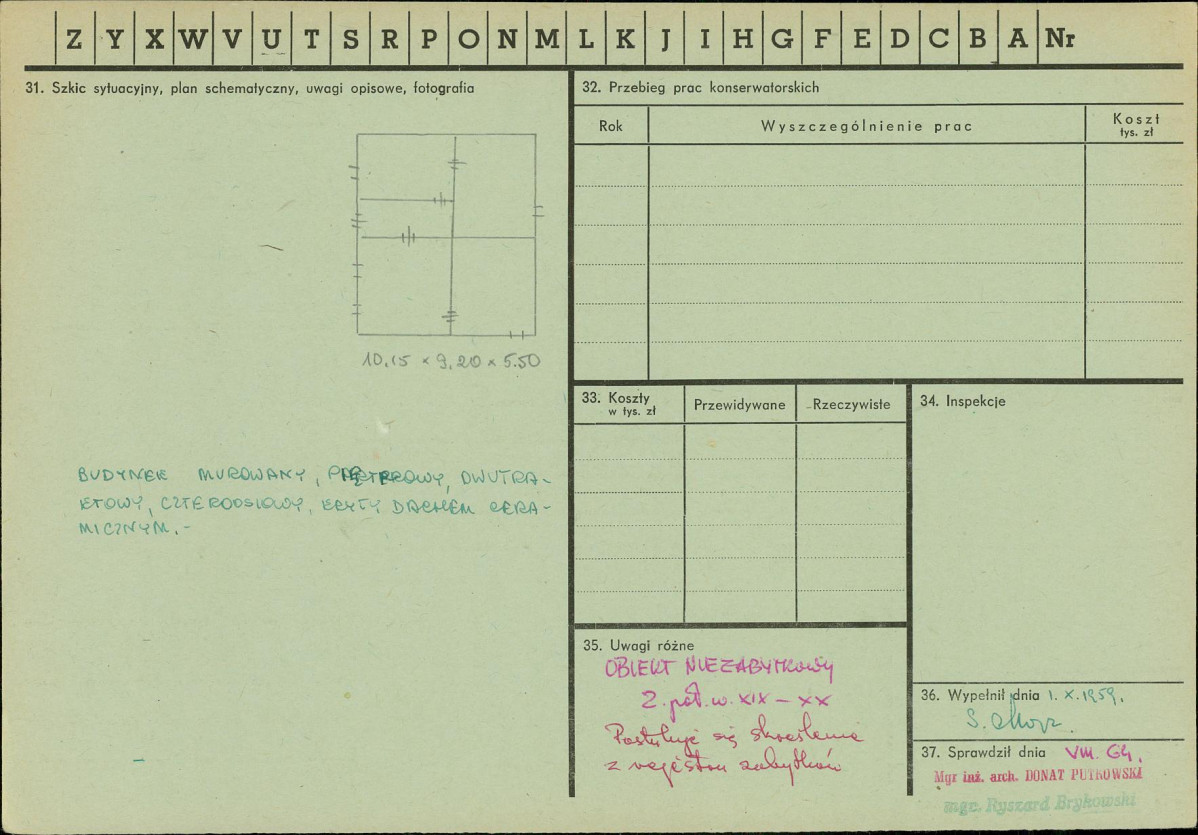 Z Y X W V U T S R P O N M L K J I H G F E D C B A Nr
31. Szkic sytuacyjny, plan schematyczny, uwagi opisowe, fotografia
10,15 × 9,20 × 5.50
BUDYNEK MUROWANY, PIĘTROWY, DWUTRA-
KTOWY, CZTEROOSIOWY, KRYTY DACHEM CERA-
MICZNYM.-
32. Przebieg prac konserwatorskich
Rok Wyszczególnienie prac Koszt
tys. zł
33. Koszty
w tys. zł
Przewidywane Rzeczywiste
34. Inspekcje
35. Uwagi różne
OBIEKT NIEZABYTKOWY
2. poł. w. XIX – XX
Postuluję się skreślenie
z rejestru zabytków
36. Wypełnił dnia 1. X. 1959.
S.
37. Sprawdził dnia VIII. 64.
Mgr inż. arch. DONAT PUTKOWSKI
mgr. Ryszard Brykowski